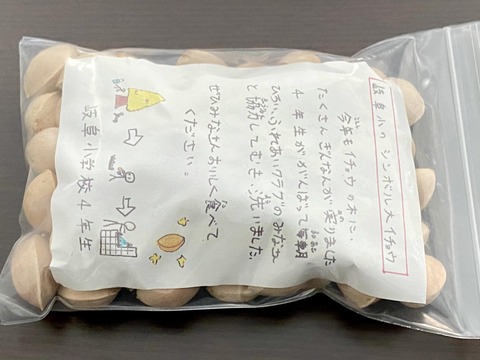 岐阜小の シンボル大イチョウ
今年もイチョウの木に、
たくさん ぎんなんが実りました
4年生ががんばって毎朝
ひろい、ふれあいクラブのみなさん
と協力してむき、洗いました。
ぜひみなさんおいしく食べて
ください。
岐阜小学校4年生